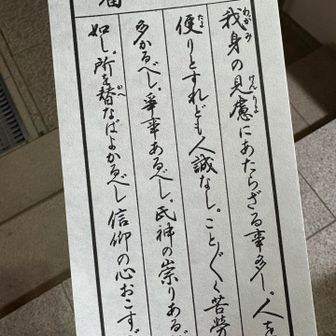 我身の見慮にあたらざる事多し。人を
便りとすれども人誠なし。こと〴〵く苦労
多かるべし。爭事あるべし。氏神の崇りある
如し。所を替なばよかるべし 信仰の心おこす